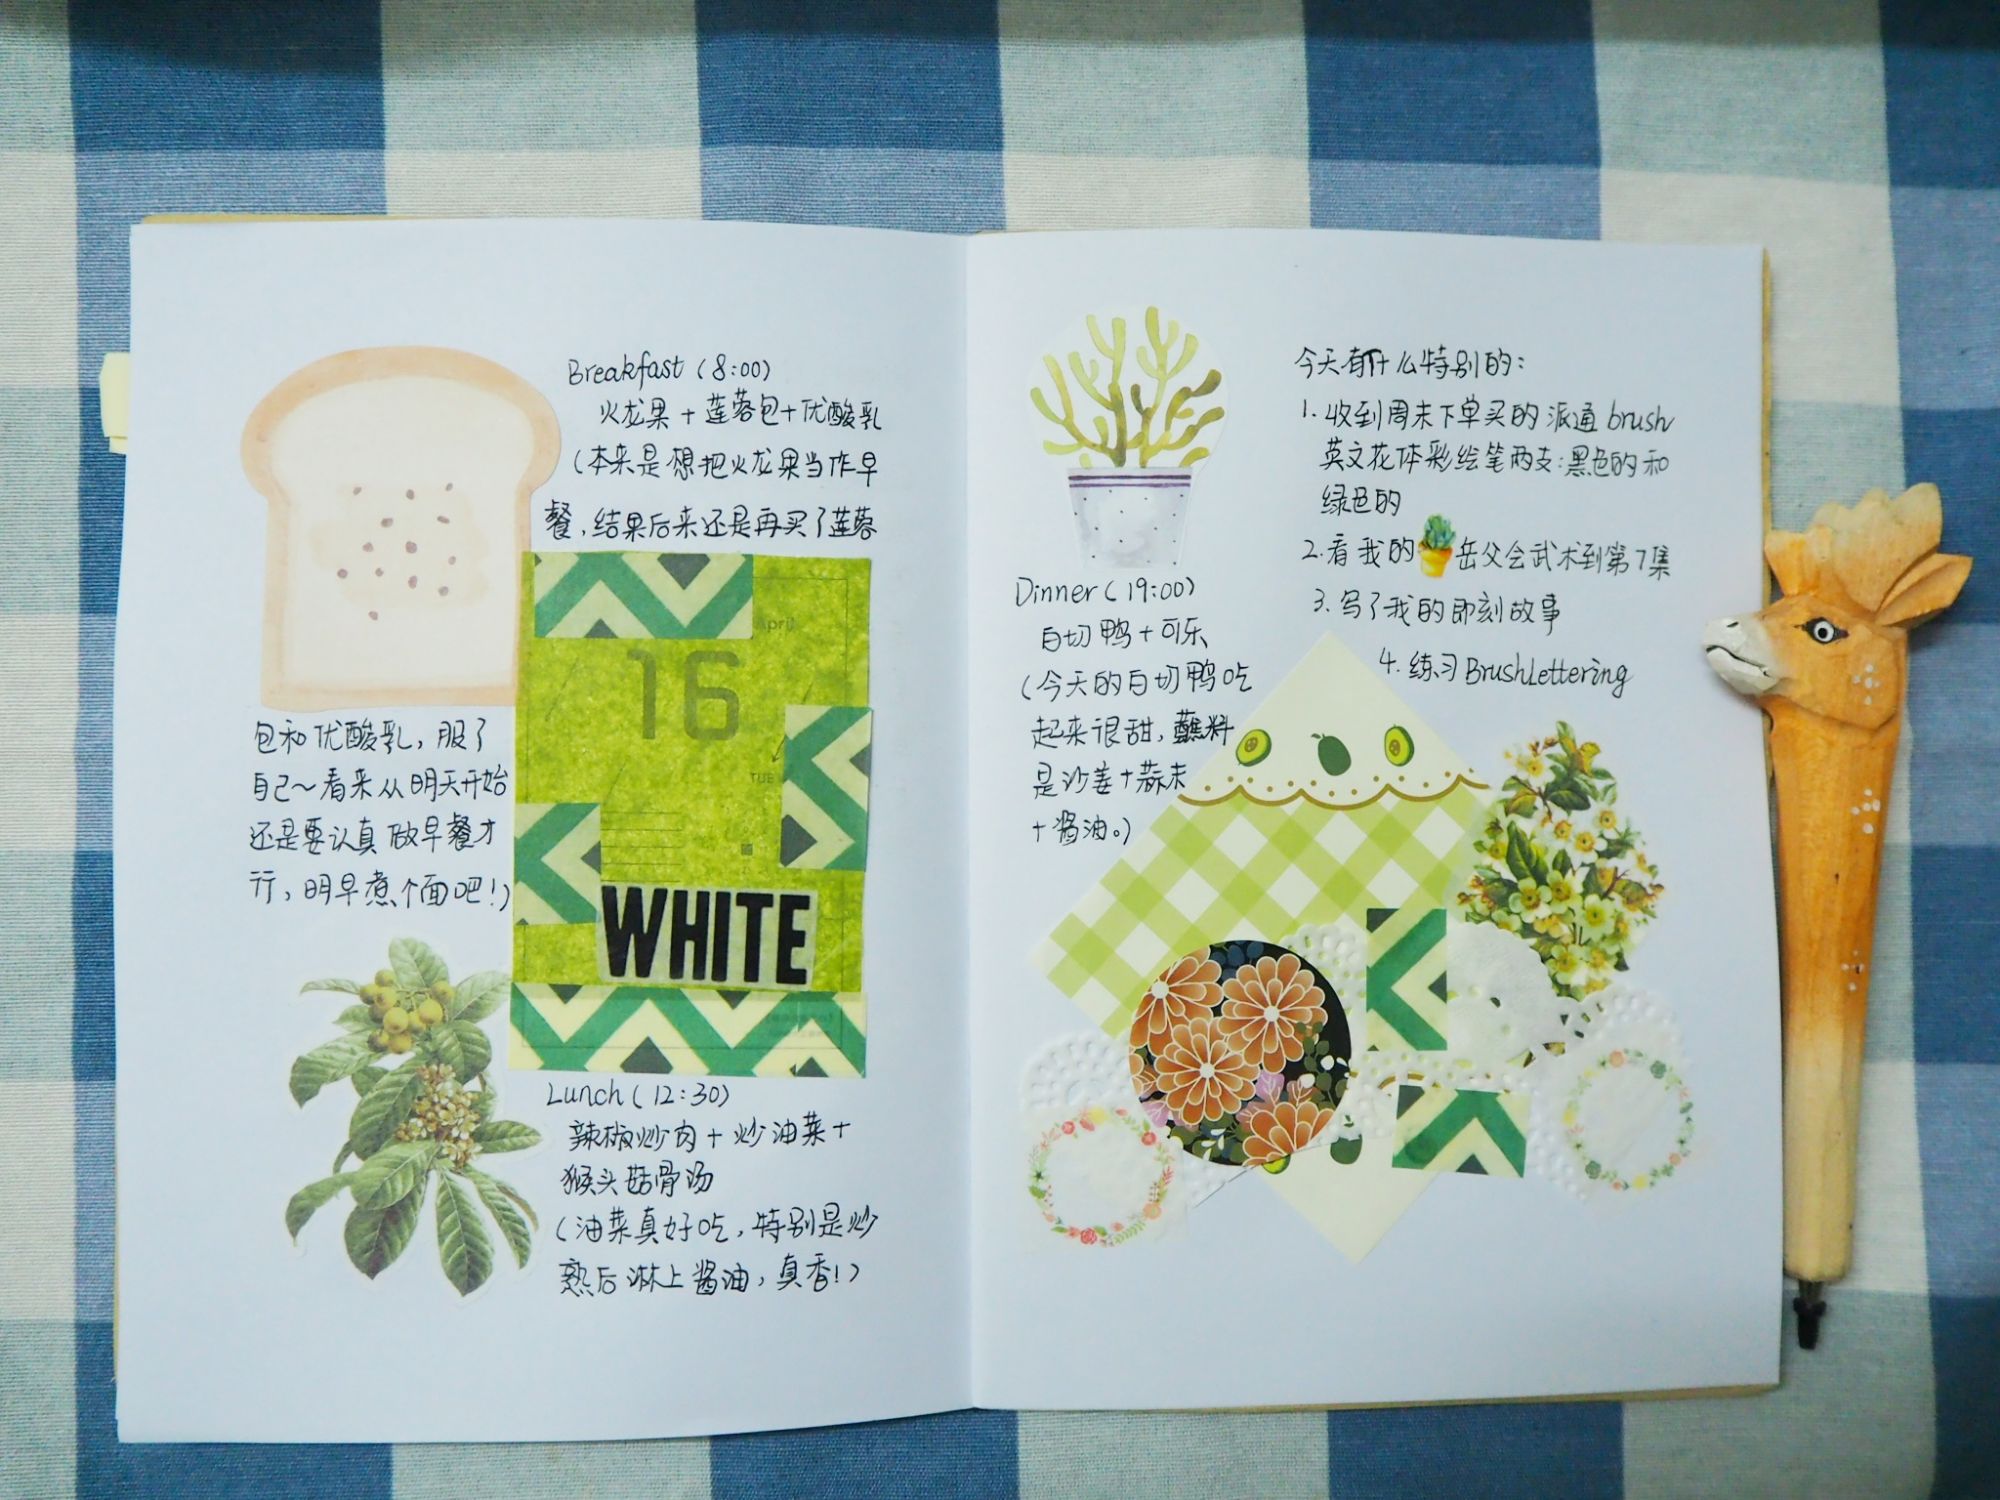 Breakfast (8:00)
火龙果 + 莲蓉包+优酸乳
(本来是想把火龙果当作早
餐,结果后来还是再买了莲蓉
包和优酸乳,服了
自己~看来从明天开始
还是要认真做早餐才
行,明早煮个面吧!)
April
16
TUE
WHITE
Lunch (12:30)
辣椒炒肉 + 炒油菜 +
猴头菇骨汤
(油菜真好吃,特别是炒
熟后淋上酱油,真香!)
Dinner (19:00)
白切鸭 + 可乐
(今天的白切鸭吃
起来很甜,蘸料
是沙姜+蒜末
+酱油。)
今天有什么特别的:
1. 收到周末下单买的派通 brush
英文花体彩绘笔两支:黑色的和
绿色的
2. 看我的岳父会武术到第7集
3. 写了我的即刻故事
4. 练习 BrushLettering